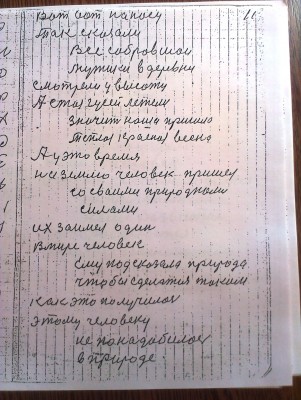 11
Вот вот на носу
Так сказали
Все собравшои
мутики в деревни
смотрели у высоту
А стоя гусей летели
значит наша пришла
Теплая красная весна
А у это время
на землю человек пришел
со сваими природными
силами
их заимел один
в мире человек
Ему подсказала природа
чтобы сделался таким
как это получилос
этому человеку
не понадобилос
в природе